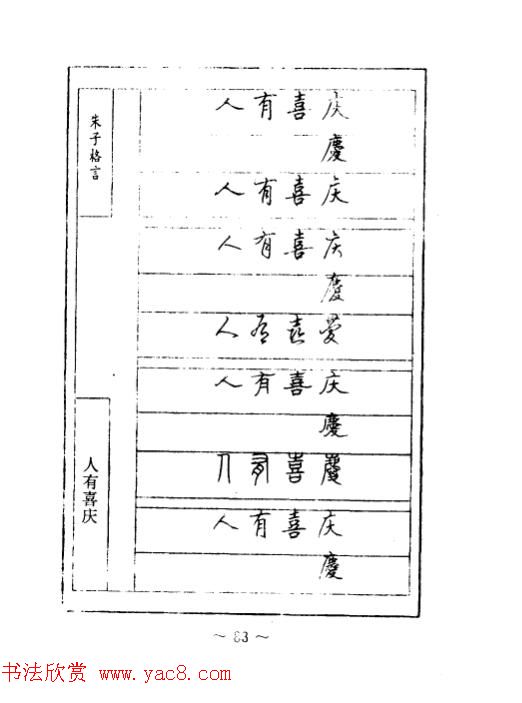 朱子格言
人有喜庆
人有喜庆
慶
人有喜庆
人有喜庆
慶
人有喜慶
人有喜庆
慶
人有喜慶
人有喜庆
慶
~ 83 ~
书法欣赏 www.yac8.com